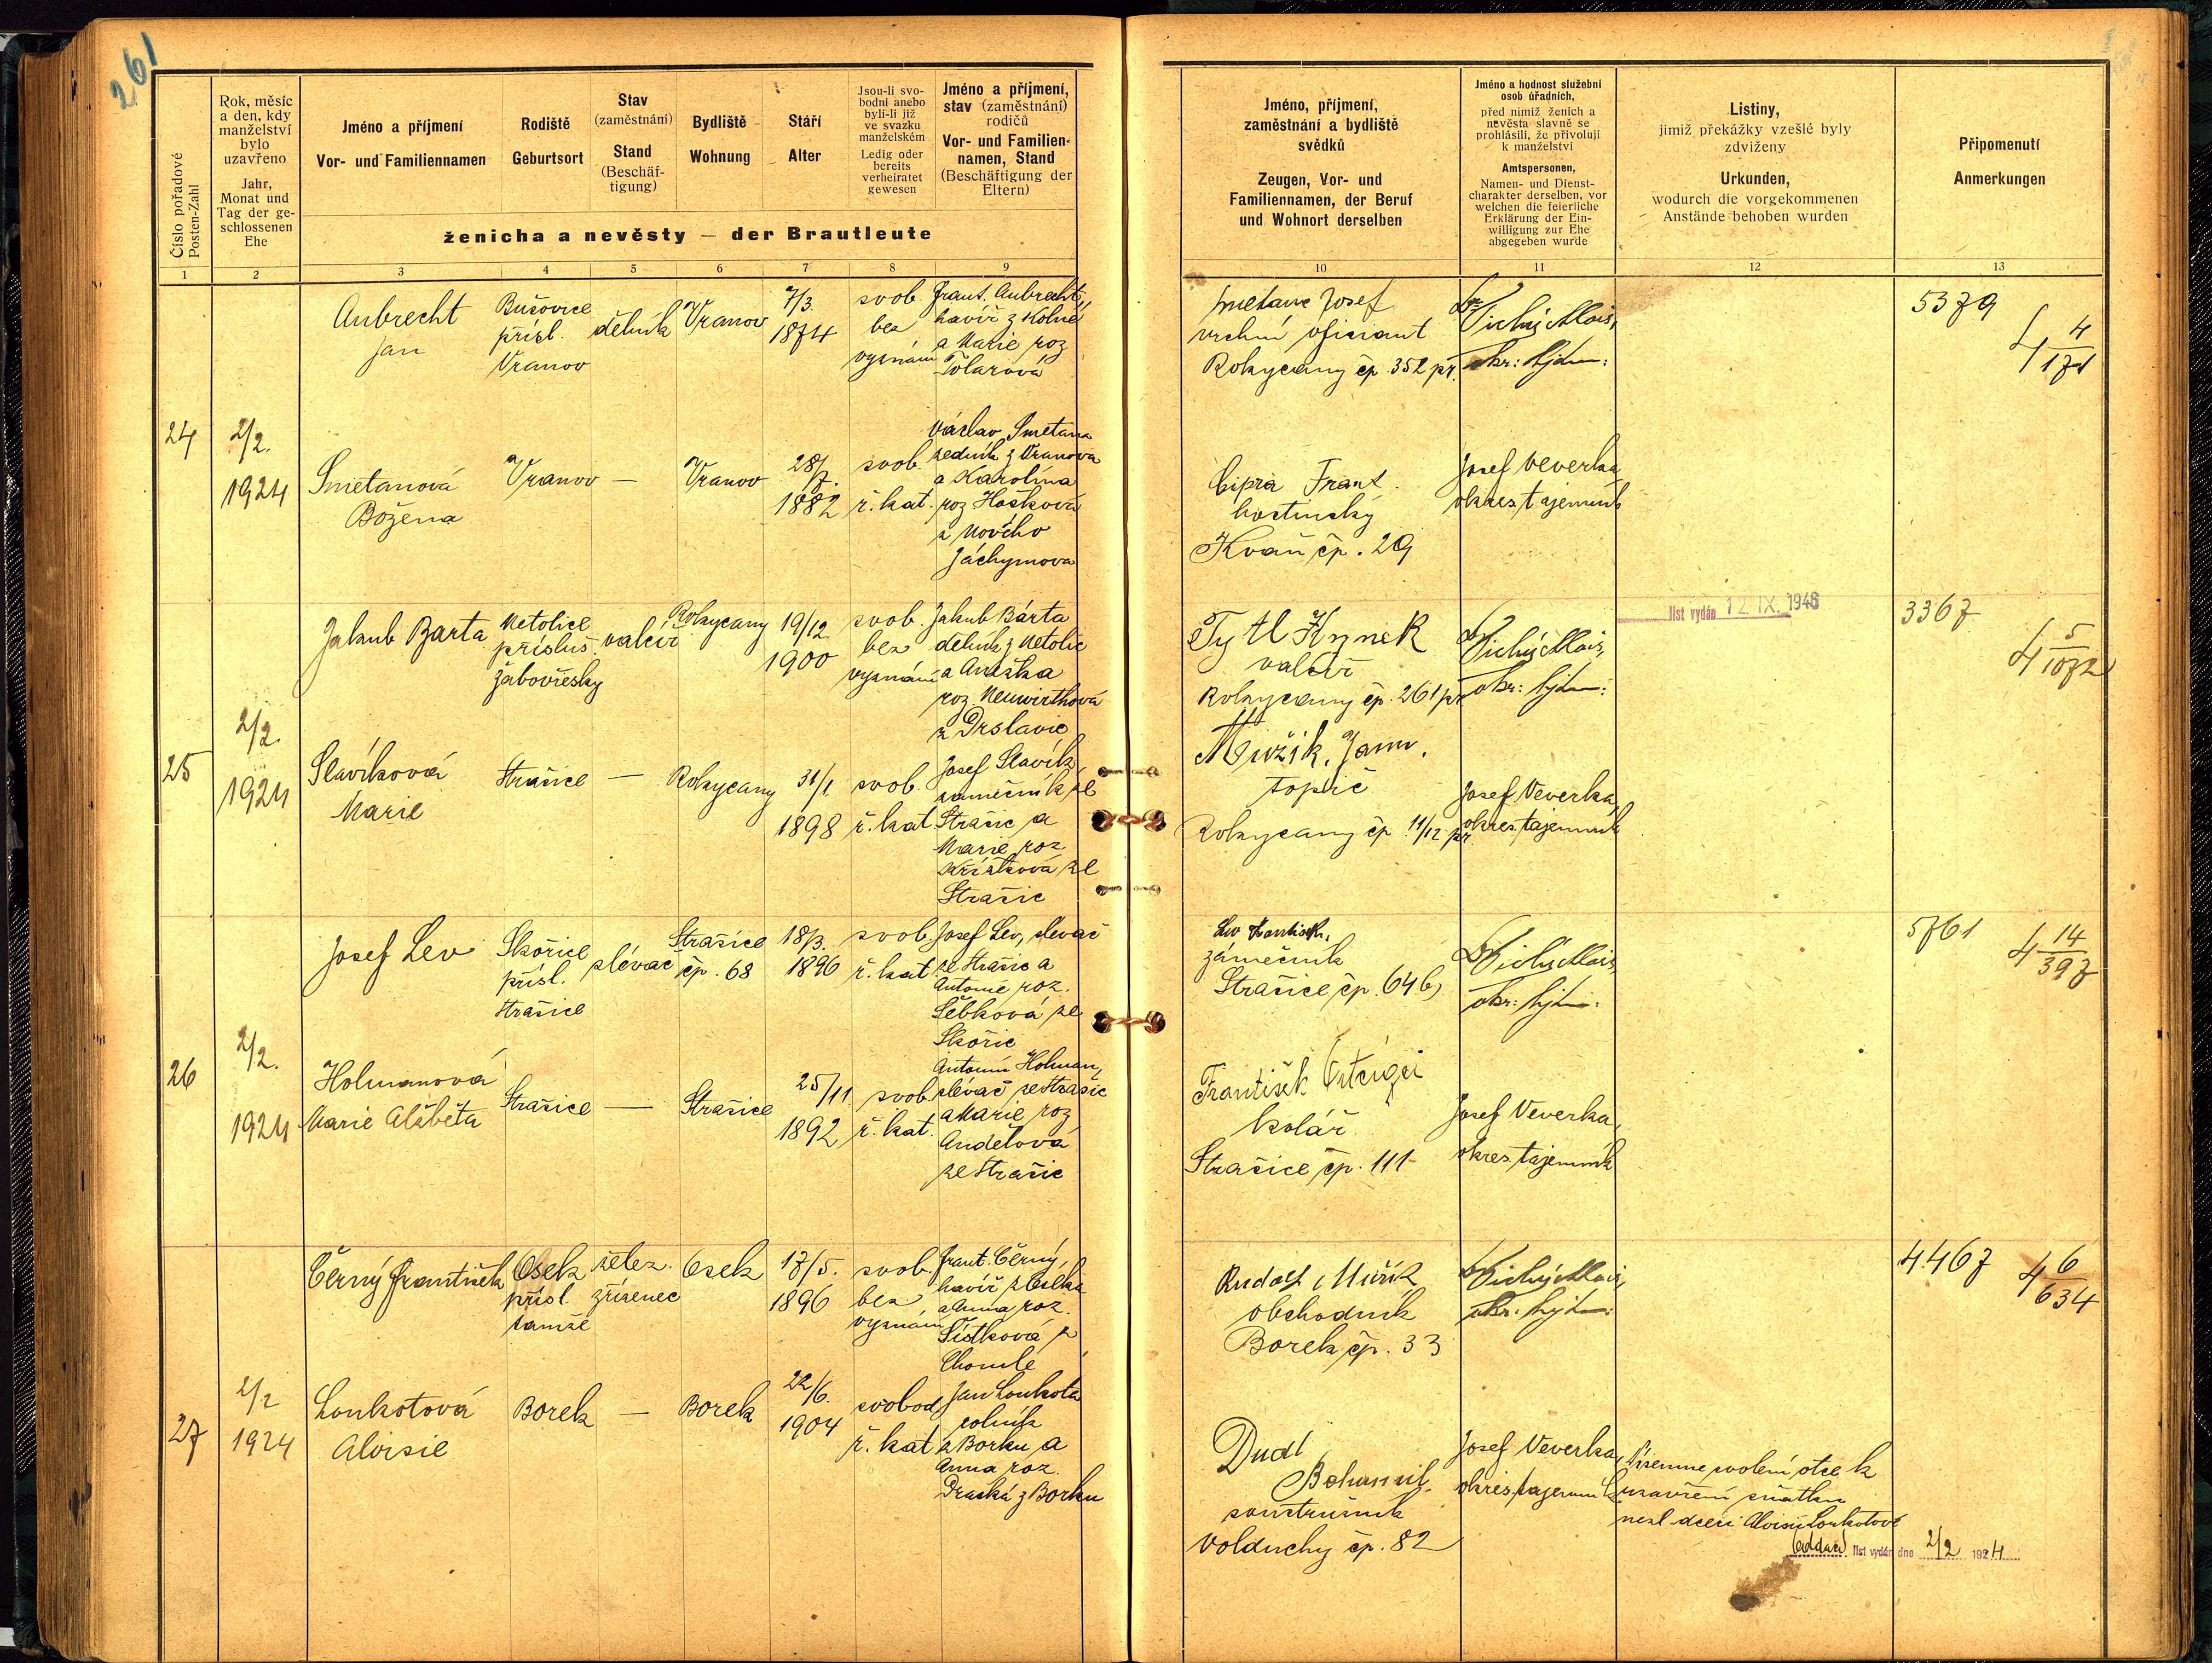 261
Číslo pořadové
Posten-Zahl
Rok, měsíc
a den, kdy
manželství
bylo
uzavřeno
Jahr,
Monat und
Tag der ge-
schlossenen
Ehe
Jméno a příjmení
Vor- und Familiennamen
Rodiště
Geburtsort
Stav
(zaměstnání)
Stand
(Beschäf-
tigung)
Bydliště
Wohnung
Stáří
Alter
Jsou-li svo-
bodni anebo
byli-li již
ve svazku
manželském
Ledig oder
bereits
verheiratet
gewesen
Jméno a příjmení,
stav (zaměstnání)
rodičů
Vor- und Familien-
namen, Stand
(Beschäftigung der
Eltern)
ženicha a nevěsty — der Brautleute
1 2 3 4 5 6 7 8 9
Jméno, příjmení,
zaměstnání a bydliště
svědků
Zeugen, Vor- und
Familiennamen, der Beruf
und Wohnort derselben
Jméno a hodnost služební
osob úřadních,
před nimiž ženich a
nevěsta slavně se
prohlásili, že přivolují
k manželství
Amtspersonen,
Namen- und Dienst-
charakter derselben, vor
welchen die feierliche
Erklärung der Ein-
willigung zur Ehe
abgegeben wurde
Listiny,
jimiž překážky vzešlé byly
zdviženy
Urkunden,
wodurch die vorgekommenen
Anstände behoben wurden
Připomenutí
Anmerkungen
10 11 12 13
24
2/2.
1924
Aubrecht
Jan
Bušovice
přísl.
Vranov
dělník
Vranov
7/3.
1874
svob
bez
vyznání
Frant. Aubrecht,
havíř z
a Marie roz
Tolarová
Smetanová
Božena
Vranov
—
Vranov
28/7.
1882
svob.
ř. kat.
Václav Smetana
zedník z Vranova
a Karolína
roz Hošková
z Nového
Jáchymova
Smetana Josef
vrchní oficiant
Rokycany čp. 352 př.
Cipra Frant.
hostinský
Kvaň čp. 29
Tichý Alois,
Josef Veverka
okres. tajemník
5379
4 4/171
25
2/2.
1924
Jakub Barta
Netolice
přísluš.
Žabovřesky
valcíř
Rokycany
19/12
1900
svob.
bez
vyznání
Jakub Bárta
dělník z Netolic
a Anežka
roz Neuwirthová
z Drslavic
Slavíková
Marie
Strašice
—
Rokycany
31/1
1898
svob.
ř. kat
Josef Slavík,
zámečník ze
Strašic a
Marie roz
ze
Strašic
Tytl Hynek
valcíř
Rokycany čp. 261 př
Mužík Jan.
topič
Rokycany čp 11/12 př.
Tichý Alois,
Josef Veverka,
okres. tajemník
list vydán 12. IX. 1946
3367
4 5/1072
26
2/2.
1924
Josef Lev
Skořice
přísl.
Strašice
slévač
Strašice
čp. 68
18/3.
1896
svob
ř. kat
Josef Lev, slevač
ze Strašic a
Antonie roz.
Šebková ze
Skořic
Holmanová
Marie Alžběta
Strašice
—
Strašice
25/11.
1892
svob
ř. kat.
Antonín Holman,
slévač ze Strašic
a Marie roz
Andělová
ze Strašic
Lev František,
zámečník
Strašice čp. 646
František
kolář
Strašice čp. 111
Tichý Alois,
Josef Veverka,
okres. tajemník
5761
4 14/397
27
2/2
1924
Černý František
Osek
přísl
tamže
želez.
zřízenec
Osek
17/5.
1896
svob.
bez
vyznání
Frant. Černý,
havíř z Oseka
a Anna roz.
Šístková z
Chomle
Loukotová
Aloisie
Borek
—
Borek
22/6.
1904
svobod.
ř. kat
Jan Loukota
rolník
z Borku a
Anna roz.
z Borku
Rudolf Mužík
obchodník
Borek čp. 33
Dudl
Bohumil
soustružník
Volduchy čp. 82
Tichý Alois,
Josef Veverka,
okres. tajemník
Písemné svolení otce k
uzavření sňatku
nezl dceři Aloisii Loukotové
(oddací) list vydán dne 2/2 1924
4467
4 6/634